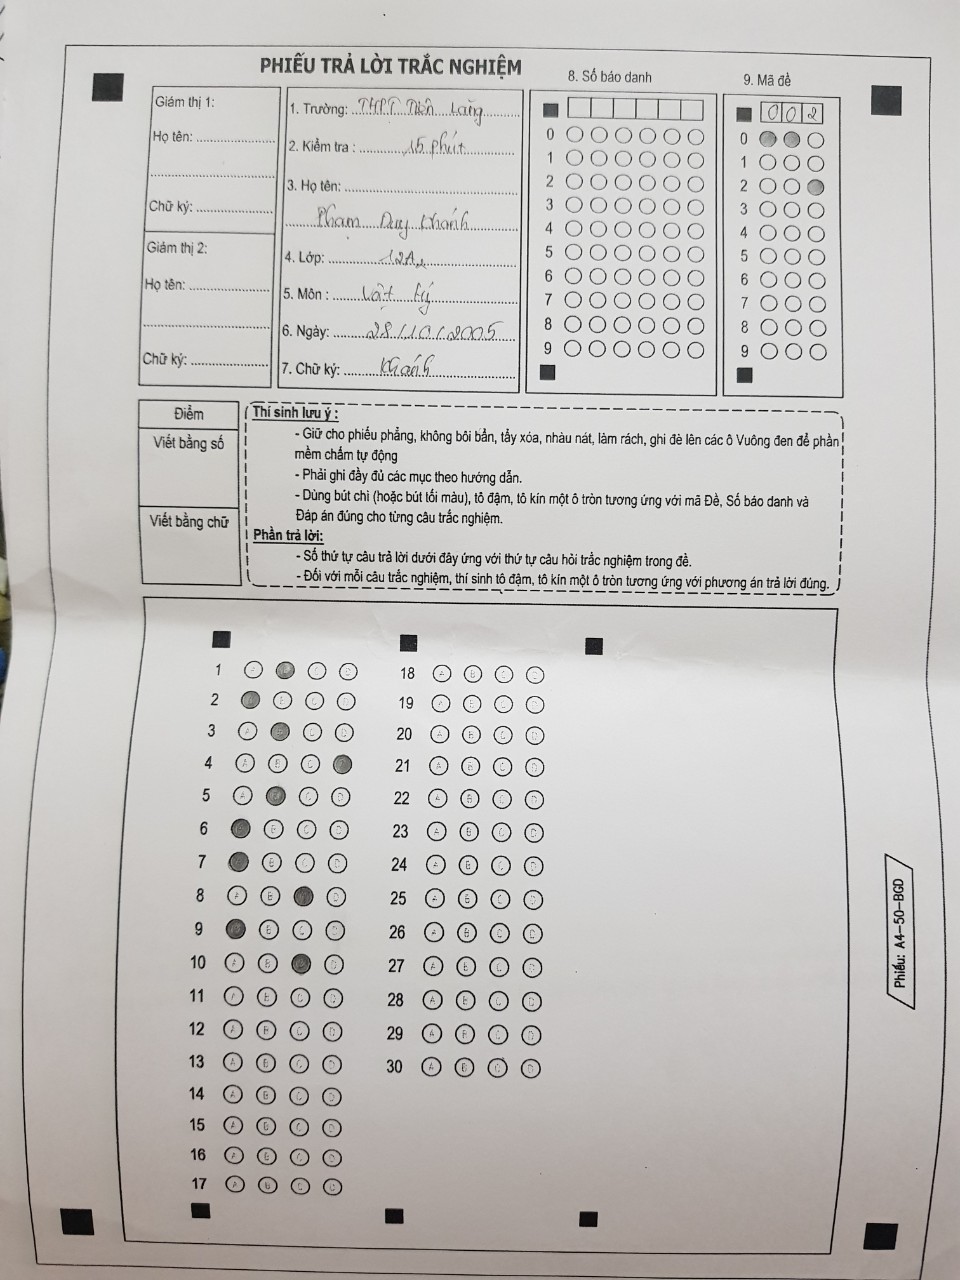 PHIẾU TRẢ LỜI TRẮC NGHIỆM
Giám thị 1:
Họ tên:
Chữ ký:
Giám thị 2:
Họ tên:
Chữ ký:
1. Trường: THPT Tiên Lãng
2. Kiểm tra : 15 phút
3. Họ tên:
Phạm Duy Khánh
4. Lớp: 12A2
5. Môn : Vật lý
6. Ngày: 28/10/2005
7. Chữ ký: Khánh
8. Số báo danh
0
1
2
3
4
5
6
7
8
9
9. Mã đề
0 0 2
0
1
2
3
4
5
6
7
8
9
Điểm
Viết bằng số
Viết bằng chữ
Thí sinh lưu ý :
- Giữ cho phiếu phẳng, không bôi bẩn, tẩy xóa, nhàu nát, làm rách, ghi đè lên các ô Vuông đen để phần
mềm chấm tự động
- Phải ghi đầy đủ các mục theo hướng dẫn.
- Dùng bút chì (hoặc bút tối màu), tô đậm, tô kín một ô tròn tương ứng với mã Đề, Số báo danh và
Đáp án đúng cho từng câu trắc nghiệm.
Phần trả lời:
- Số thứ tự câu trả lời dưới đây ứng với thứ tự câu hỏi trắc nghiệm trong đề.
- Đối với mỗi câu trắc nghiệm, thí sinh tô đậm, tô kín một ô tròn tương ứng với phương án trả lời đúng.
1 A C D
2 B C D
3 A C D
4 A B C
5 A C D
6 B C D
7 B C D
8 A B D
9 B C D
10 A B D
11 A B C D
12 A B C D
13 A B C D
14 A B C D
15 A B C D
16 A B C D
17 A B C D
18 A B C D
19 A B C D
20 A B C D
21 A B C D
22 A B C D
23 A B C D
24 A B C D
25 A B C D
26 A B C D
27 A B C D
28 A B C D
29 A B C D
30 A B C D
Phiếu: A4-50-BGD